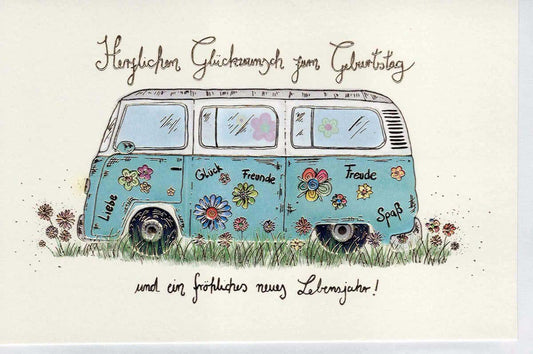 Herzlichen Glückwunsch zum Geburtstag
Liebe
Glück
Freunde
Freude
Spaß
und ein fröhliches neues Lebensjahr!